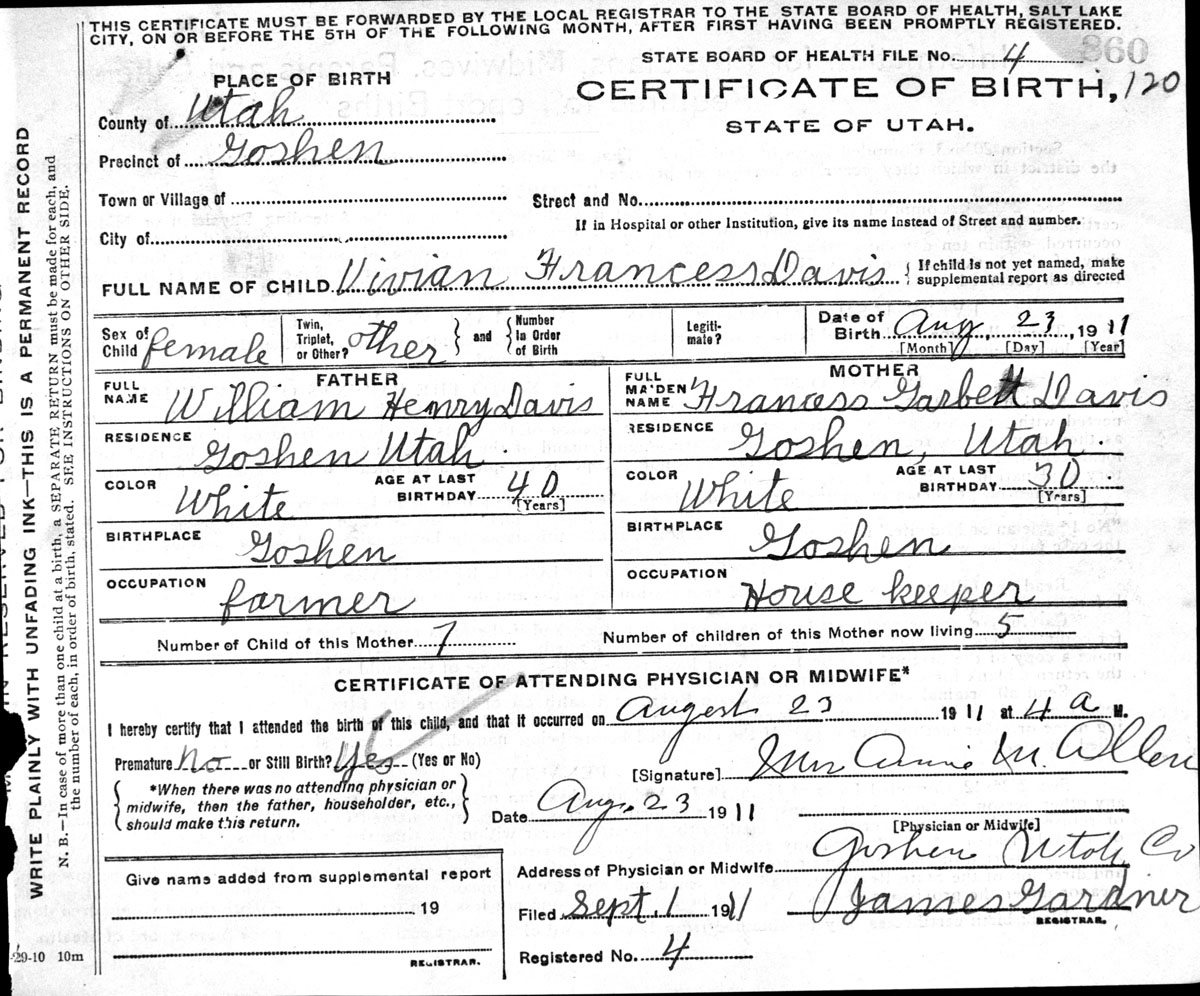 THIS CERTIFICATE MUST BE FORWARDED BY THE LOCAL REGISTRAR TO THE STATE BOARD OF HEALTH, SALT LAKE
CITY, ON OR BEFORE THE 5TH OF THE FOLLOWING MONTH, AFTER FIRST HAVING BEEN PROMPTLY REGISTERED.
STATE BOARD OF HEALTH FILE No. 4
360
PLACE OF BIRTH
CERTIFICATE OF BIRTH, 120
STATE OF UTAH.
County of Utah
Precinct of Goshen
Town or Village of
Street and No.
If in Hospital or other Institution, give its name instead of Street and number.
City of
FULL NAME OF CHILD Vivian Francess Davis { If child is not yet named, make
supplemental report as directed
Sex of
Child female
Twin,
Triplet,
or Other? other
and
Number
in Order
of Birth
Legiti-
mate?
Date of
Birth Aug, 23, 1911
[Month] [Day] [Year]
FATHER
FULL
NAME William Henry Davis
MOTHER
FULL
MAIDEN
NAME Francess Garbett Davis
RESIDENCE Goshen Utah.
RESIDENCE Goshen, Utah.
COLOR White AGE AT LAST
BIRTHDAY 40
[Years]
COLOR White AGE AT LAST
BIRTHDAY 30
[Years]
BIRTHPLACE Goshen
BIRTHPLACE Goshen
OCCUPATION farmer
OCCUPATION House keeper
Number of Child of this Mother 7 Number of children of this Mother now living 5
CERTIFICATE OF ATTENDING PHYSICIAN OR MIDWIFE*
I hereby certify that I attended the birth of this child, and that it occurred on August 23 1911 at 4 a M.
Premature No or Still Birth? Yes (Yes or No)
[Signature] Mrs Annie M. Allen
*When there was no attending physician or
midwife, then the father, householder, etc.,
should make this return.
Date Aug, 23 1911
[Physician or Midwife]
Give name added from supplemental report
19
REGISTRAR.
Address of Physician or Midwife Goshen Utah Co
Filed Sept, 1 1911 James Gardner
REGISTRAR.
Registered No. 4
-29-10 10m
WRITE PLAINLY WITH UNFADING INK—THIS IS A PERMANENT RECORD
N. B.—In case of more than one child at a birth, a SEPARATE RETURN must be made for each, and
the number of each, in order of birth, stated. SEE INSTRUCTIONS ON OTHER SIDE.